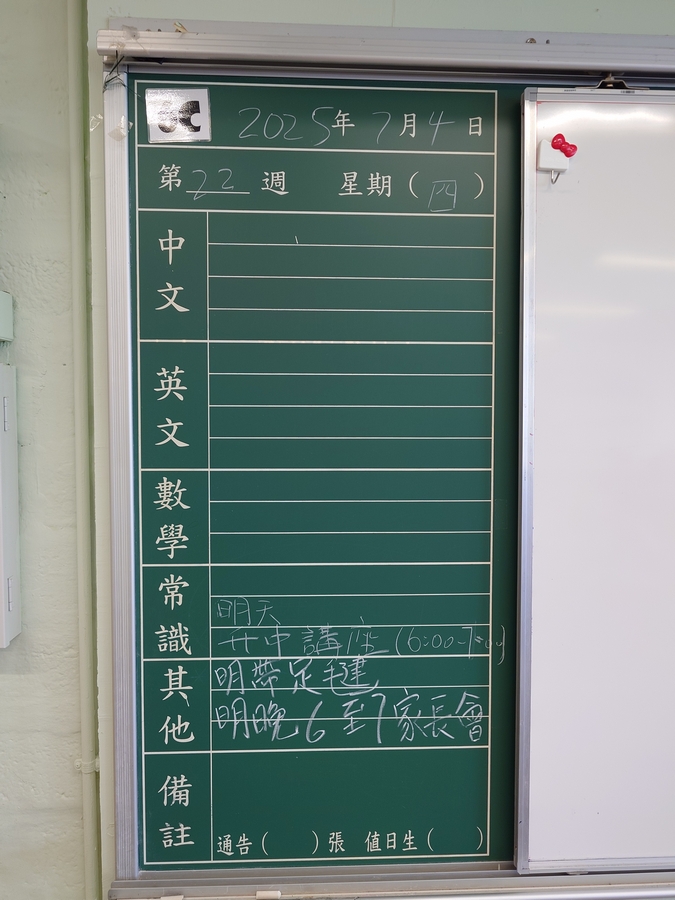 2025年7月4日
第22週 星期(四)
中文
英文
數學
常識
明天
升中講座(6:00-7:00)
其他
明帶足毽
明晚6至7家長會
備註
通告( )張 值日生( )